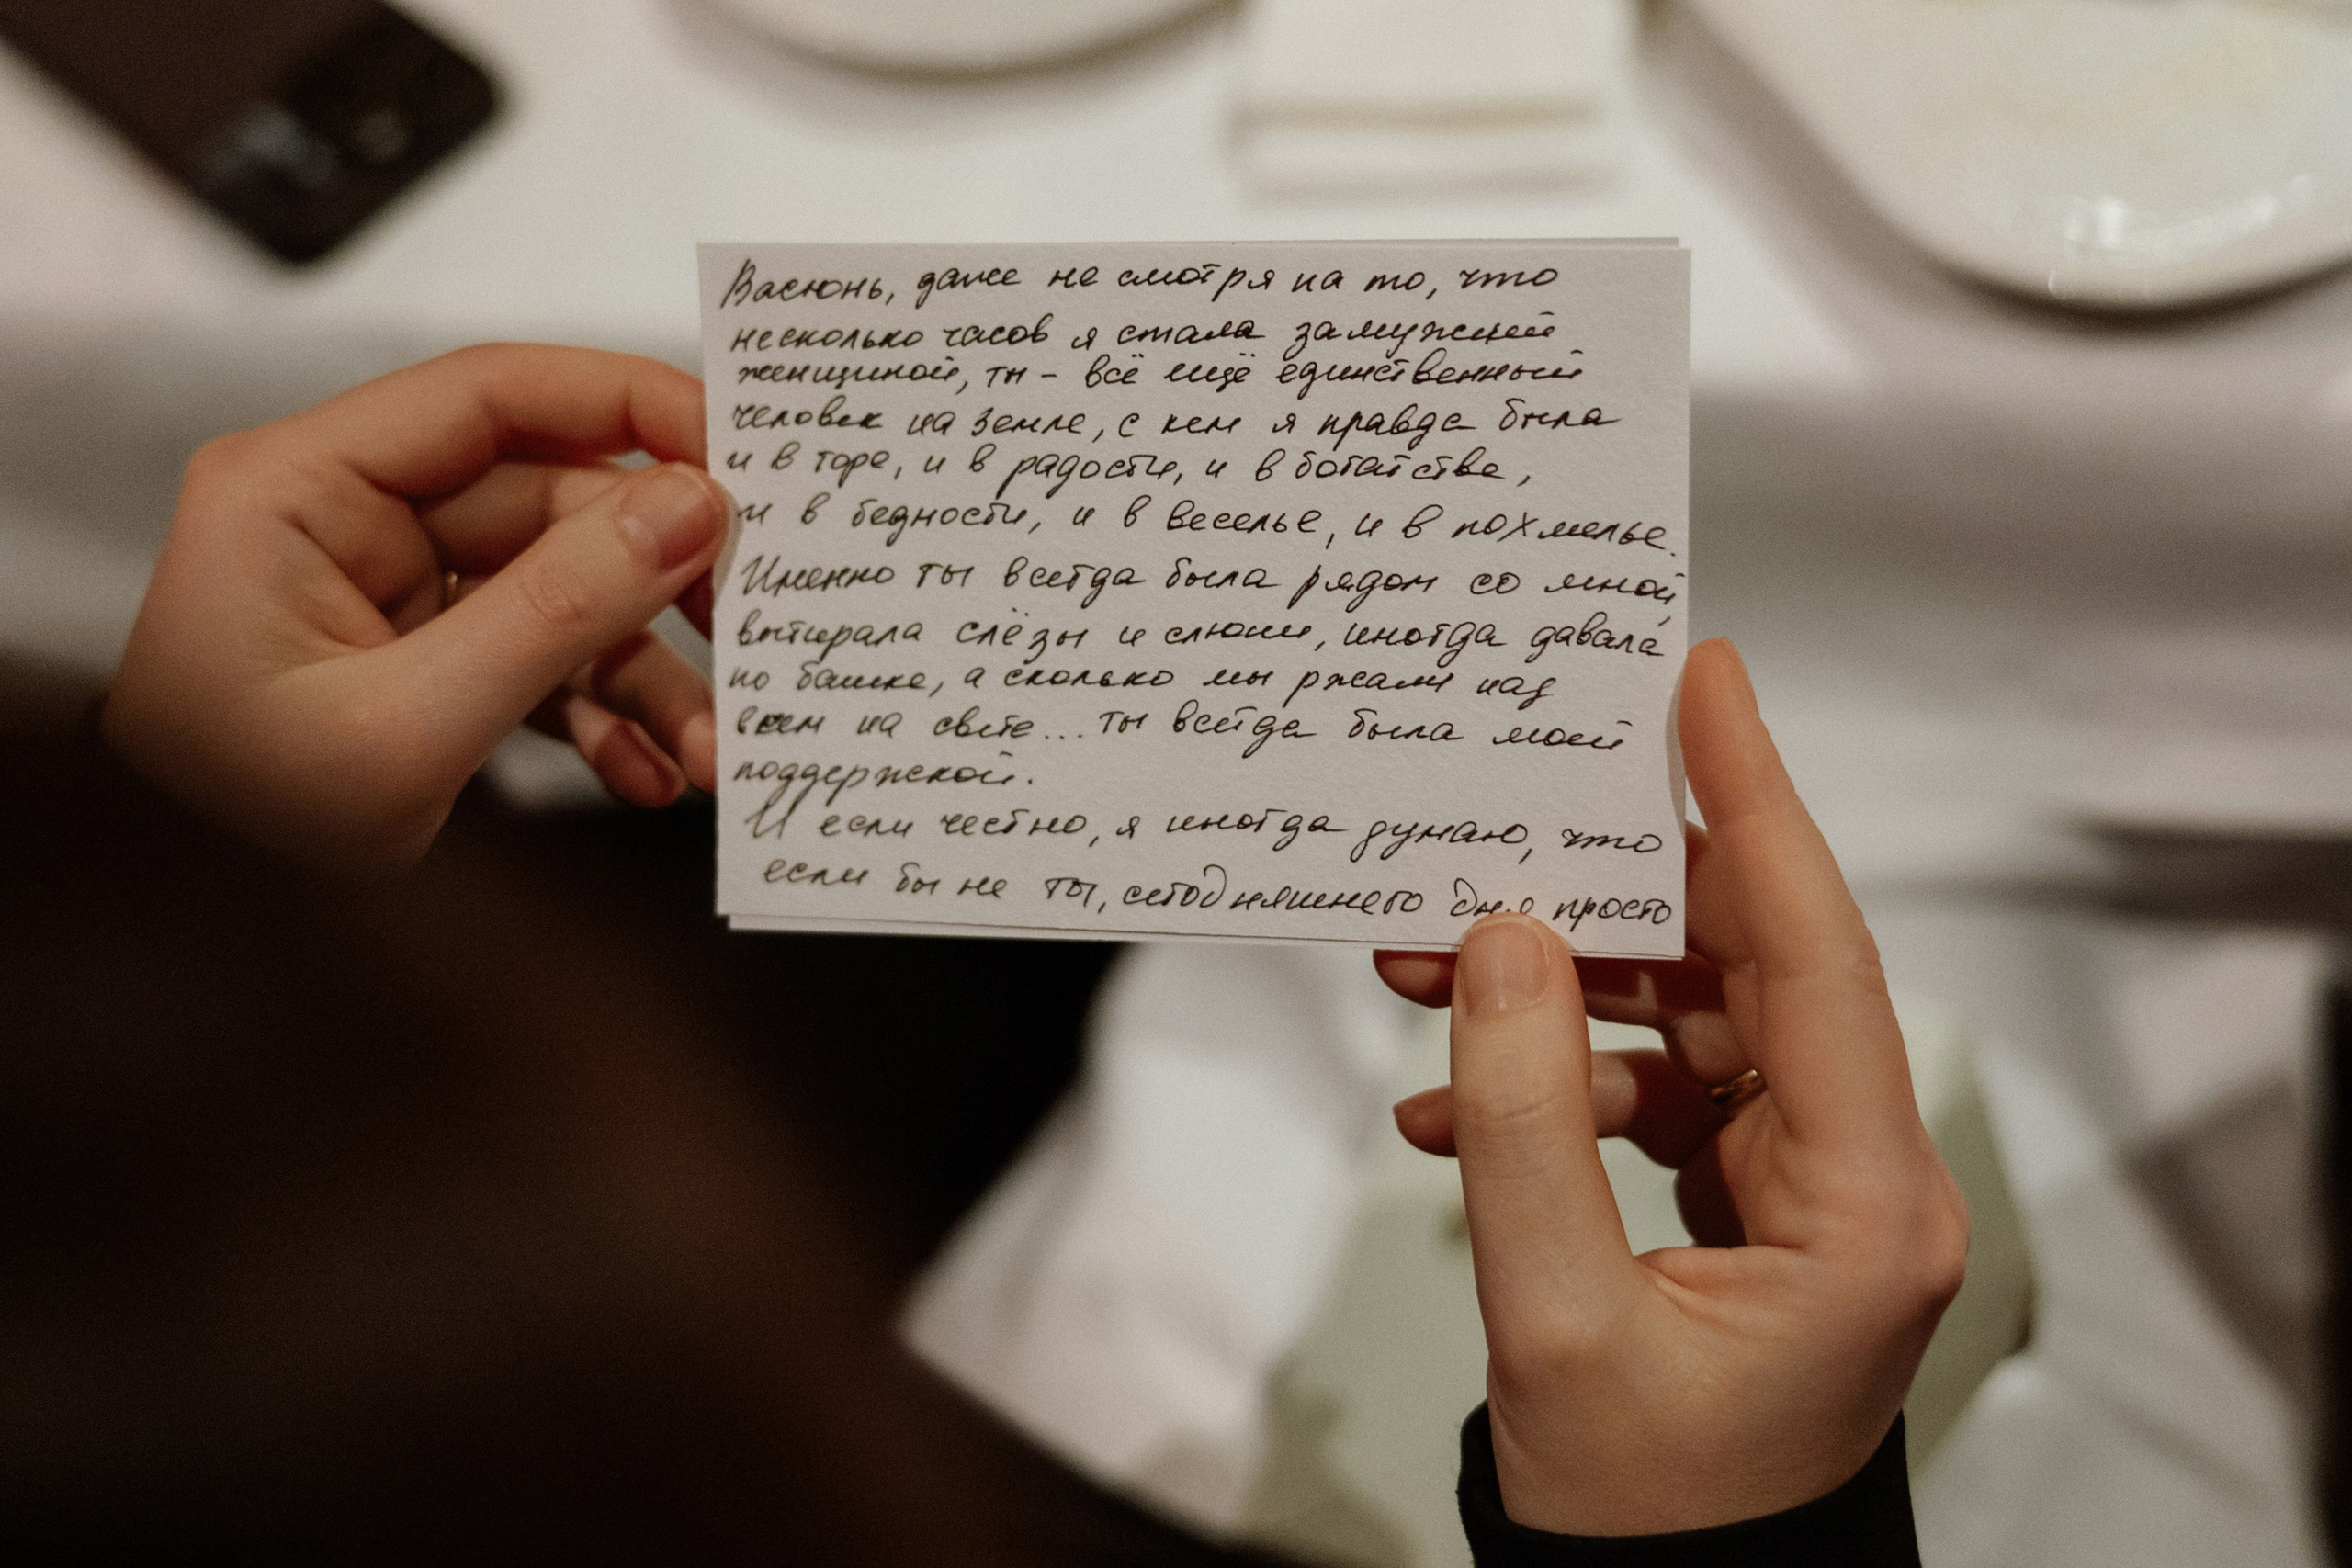 Васюнь, даже не смотря на то, что
несколько часов я стала замужней
женщиной, ты - всё ещё единственный
человек на земле, с кем я правда была
и в горе, и в радости, и в богатстве,
и в бедности, и в веселье, и в похмелье.
Именно ты всегда была рядом со мной,
вытирала слёзы и слюни, иногда давала
по башке, а сколько мы ржали над
всем на свете... ты всегда была моей
поддержкой.
И если честно, я иногда думаю, что
если бы не ты, сегодняшнего дня просто